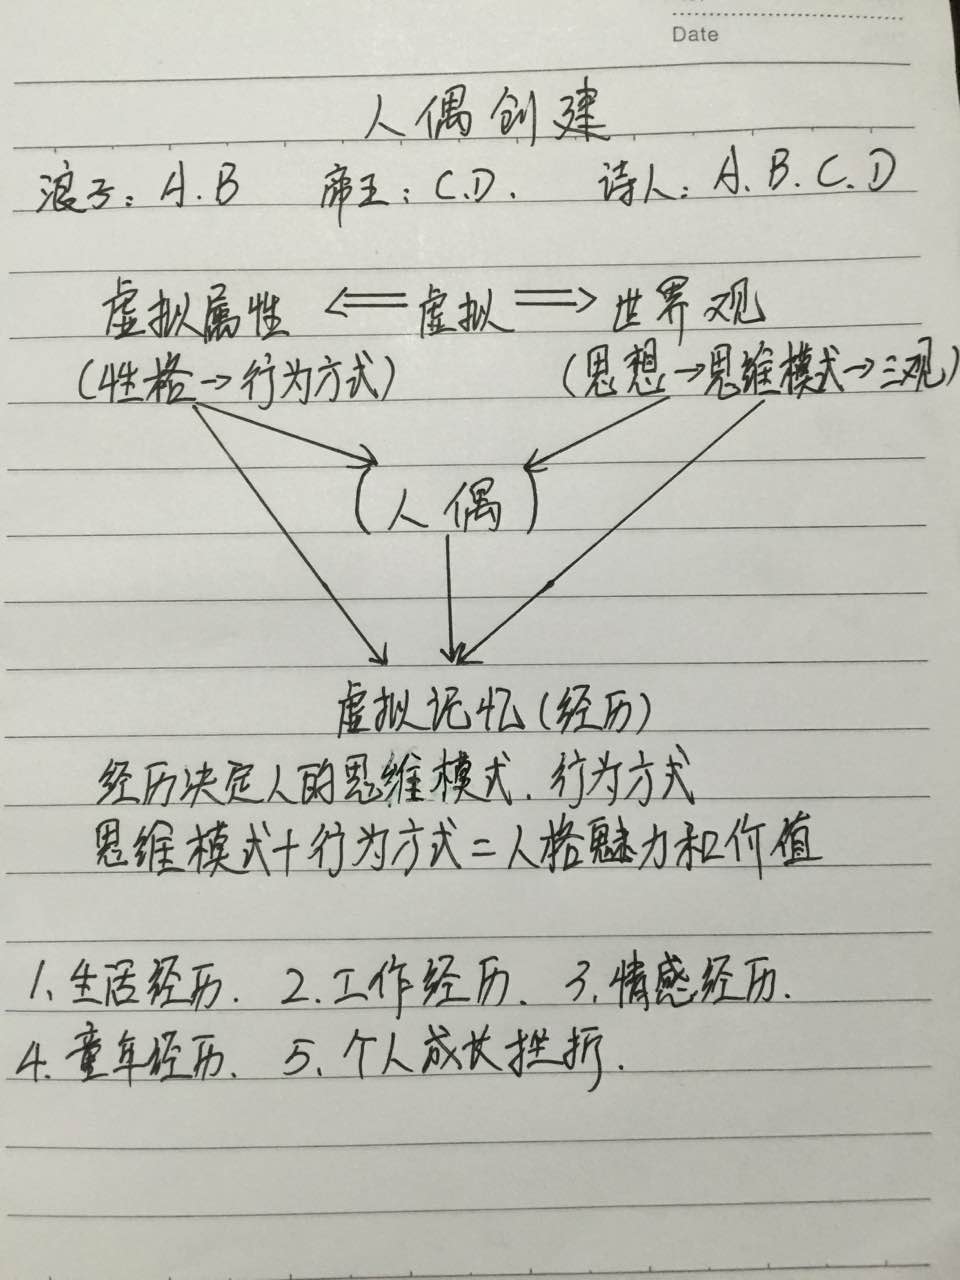 Date
人偶创建
浪子：A.B 帝王：C.D. 诗人：A.B.C.D
虚拟属性 <== 虚拟 ==> 世界观
(性格→行为方式) (思想→思维模式→三观)
(人偶)
虚拟记忆(经历)
经历决定人的思维模式.行为方式
思维模式+行为方式=人格魅力和价值
1.生活经历. 2.工作经历. 3.情感经历.
4.童年经历. 5.个人成长挫折.